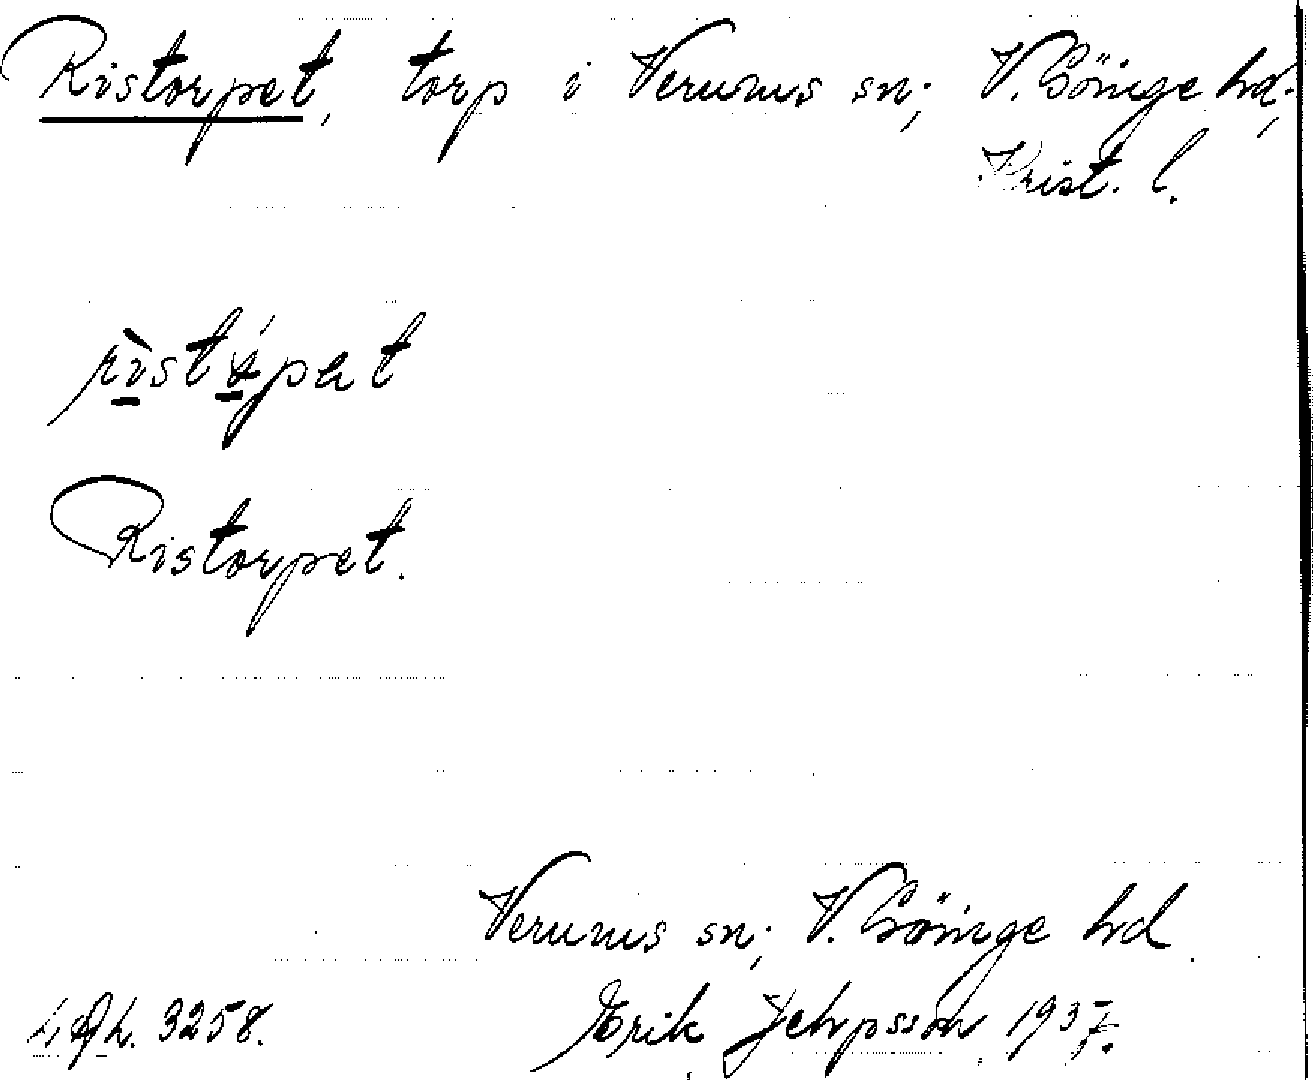 Ristorpet, torp i Verums sn; V. Göinge hd;
Krist. l.
Ristorpet.
Verums sn; V. Göinge hd.
3258. Erik Jehpsson 1937.